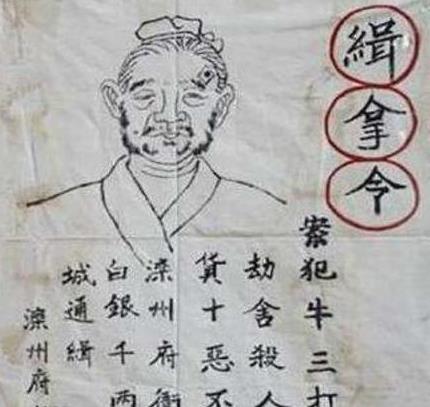 緝拿令
案犯牛三打
劫舍殺人
貨十惡不
灤州府衙
白銀千两
城通緝
灤州府